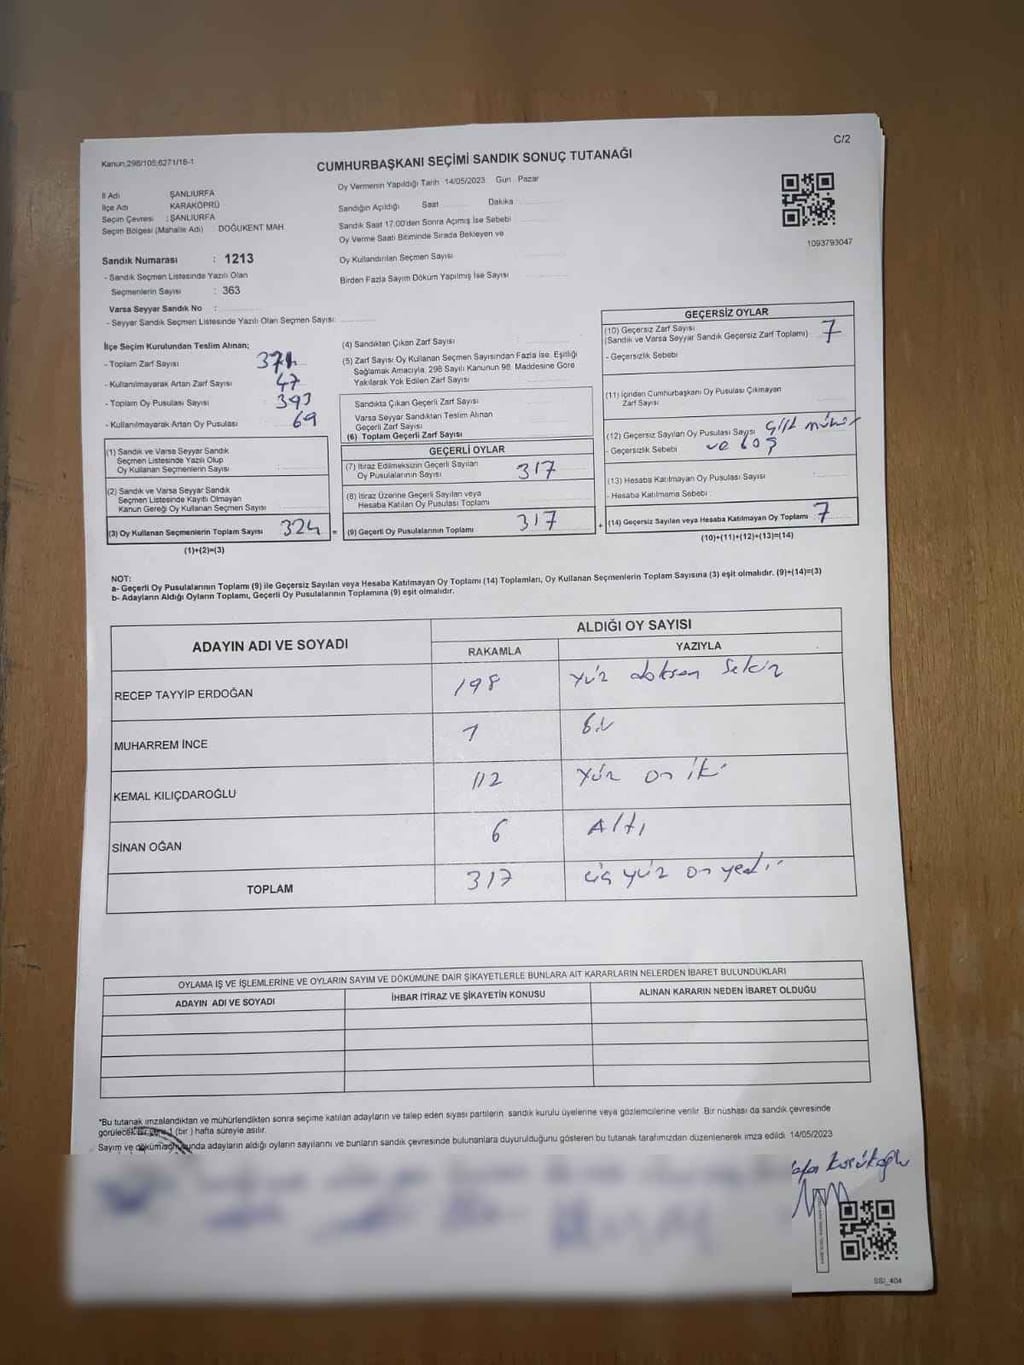 C/2
Kanun;298/105;6271/18-1
CUMHURBAŞKANI SEÇİMİ SANDIK SONUÇ TUTANAĞI
İl Adı ŞANLIURFA
İlçe Adı KARAKÖPRÜ
Seçim Çevresi : ŞANLIURFA
Seçim Bölgesi (Mahalle Adı) : DOĞUKENT MAH.
Sandık Numarası : 1213
- Sandık Seçmen Listesinde Yazılı Olan
Seçmenlerin Sayısı : 363
Varsa Seyyar Sandık No :
- Seyyar Sandık Seçmen Listesinde Yazılı Olan Seçmen Sayısı:
Oy Vermenin Yapıldığı Tarih 14/05/2023 Gün Pazar
Sandığın Açıldığı Saat Dakika
Sandık Saat 17:00'den Sonra Açımış İse Sebebi
Oy Verme Saati Bitiminde Sırada Bekleyen ve
Oy Kullandırılan Seçmen Sayısı
Birden Fazla Sayım Döküm Yapılmış İse Sayısı
1093793047
İlçe Seçim Kurulundan Teslim Alınan;
- Toplam Zarf Sayısı
- Kullanılmayarak Artan Zarf Sayısı 47
- Toplam Oy Pusulası Sayısı 393
- Kullanılmayarak Artan Oy Pusulası 69
(1) Sandık ve Varsa Seyyar Sandık
Seçmen Listesinde Yazılı Olup
Oy Kullanan Seçmenlerin Sayısı
(2) Sandık ve Varsa Seyyar Sandık
Seçmen Listesinde Kayıtlı Olmayan
Kanun Gereği Oy Kullanan Seçmen Sayısı
(3) Oy Kullanan Seçmenlerin Toplam Sayısı 324 =
(1)+(2)=(3)
(4) Sandıktan Çıkan Zarf Sayısı
(5) Zarf Sayısı Oy Kullanan Seçmen Sayısından Fazla İse, Eşitliği
Sağlamak Amacıyla, 298 Sayılı Kanunun 98. Maddesine Göre
Yakılarak Yok Edilen Zarf Sayısı
Sandıkta Çıkan Geçerli Zarf Sayısı
Varsa Seyyar Sandıktan Teslim Alınan
Geçerli Zarf Sayısı
(6) Toplam Geçerli Zarf Sayısı
GEÇERLİ OYLAR
(7) İtiraz Edilmeksizin Geçerli Sayılan
Oy Pusulalarının Sayısı 317
(8) İtiraz Üzerine Geçerli Sayılan veya
Hesaba Katılan Oy Pusulası Toplamı
(9) Geçerli Oy Pusulalarının Toplamı 317 +
GEÇERSİZ OYLAR
(10) Geçersiz Zarf Sayısı
(Sandık ve Varsa Seyyar Sandık Geçersiz Zarf Toplamı) 7
- Geçersizlik Sebebi
(11) İçinden Cumhurbaşkanı Oy Pusulası Çıkmayan
Zarf Sayısı
(12) Geçersiz Sayılan Oy Pusulası Sayısı çift mühür
- Geçersizlik Sebebi ve boş
(13) Hesaba Katılmayan Oy Pusulası Sayısı
- Hesaba Katılmama Sebebi
(14) Geçersiz Sayılan veya Hesaba Katılmayan Oy Toplamı 7
(10)+(11)+(12)+(13)=(14)
NOT:
a- Geçerli Oy Pusulalarının Toplamı (9) ile Geçersiz Sayılan veya Hesaba Katılmayan Oy Toplamı (14) Toplamları, Oy Kullanan Seçmenlerin Toplam Sayısına (3) eşit olmalıdır. (9)+(14)=(3)
b- Adayların Aldığı Oyların Toplamı, Geçerli Oy Pusulalarının Toplamına (9) eşit olmalıdır.
ADAYIN ADI VE SOYADI ALDIĞI OY SAYISI
RAKAMLA YAZIYLA
RECEP TAYYİP ERDOĞAN 198 Yüz doksan Sekiz
MUHARREM İNCE 1 bir
KEMAL KILIÇDAROĞLU 112 Yüz on iki
SİNAN OĞAN 6 Altı
TOPLAM 317 üç yüz on yedi
OYLAMA İŞ VE İŞLEMLERİNE VE OYLARIN SAYIM VE DÖKÜMÜNE DAİR ŞİKAYETLERLE BUNLARA AİT KARARLARIN NELERDEN İBARET BULUNDUKLARI
ADAYIN ADI VE SOYADI İHBAR İTİRAZ VE ŞİKAYETİN KONUSU ALINAN KARARIN NEDEN İBARET OLDUĞU
*Bu tutanak imzalandıktan ve mühürlendikten sonra seçime katılan adayların ve talep eden siyasi partilerin sandık kurulu üyelerine veya gözlemcilerine verilir. Bir nüshası da sandık çevresinde
görülecek bir yere 1 (bir) hafta süreyle asılır.
Sayım ve dökümü sonunda adayların aldığı oyların sayılarını ve bunların sandık çevresinde bulunanlara duyurulduğunu gösteren bu tutanak tarafımızdan düzenlenerek imza edildi. 14/05/2023
SSI_404